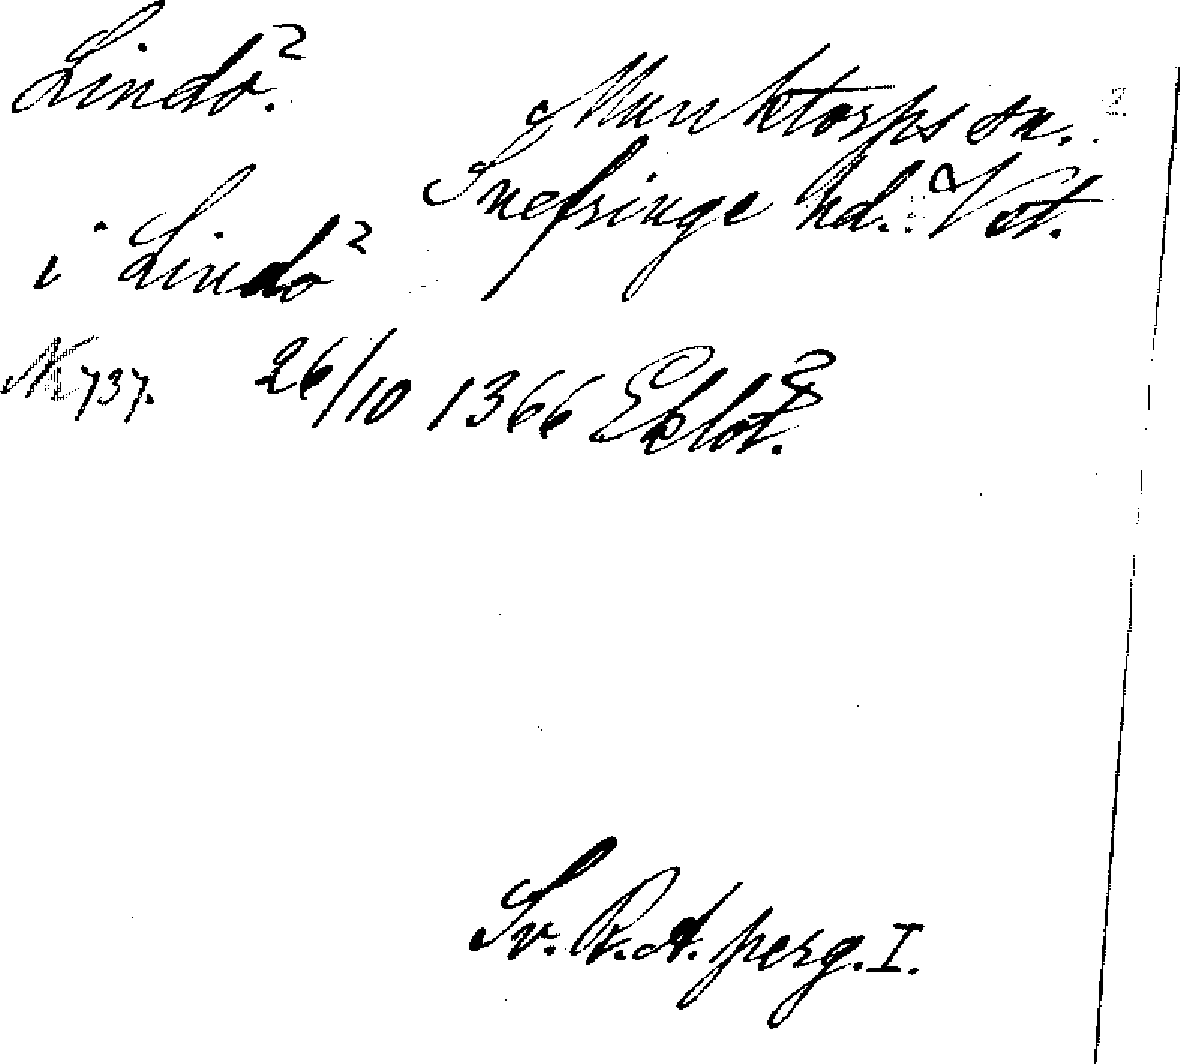 Lindo.²
Munktorps sn.
Snefringe hd. Vst.
i Lindo²
N 737. 26/10 1366 Eklöt.
Sv. R.A. perg. I.